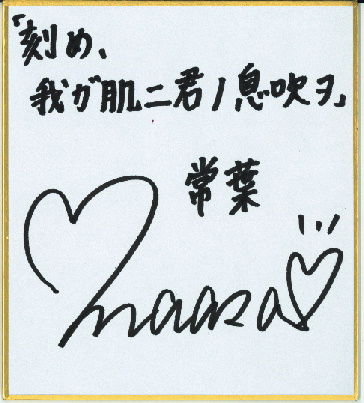 「刻め、
我ガ肌ニ君ノ息吹ヲ」
常葉